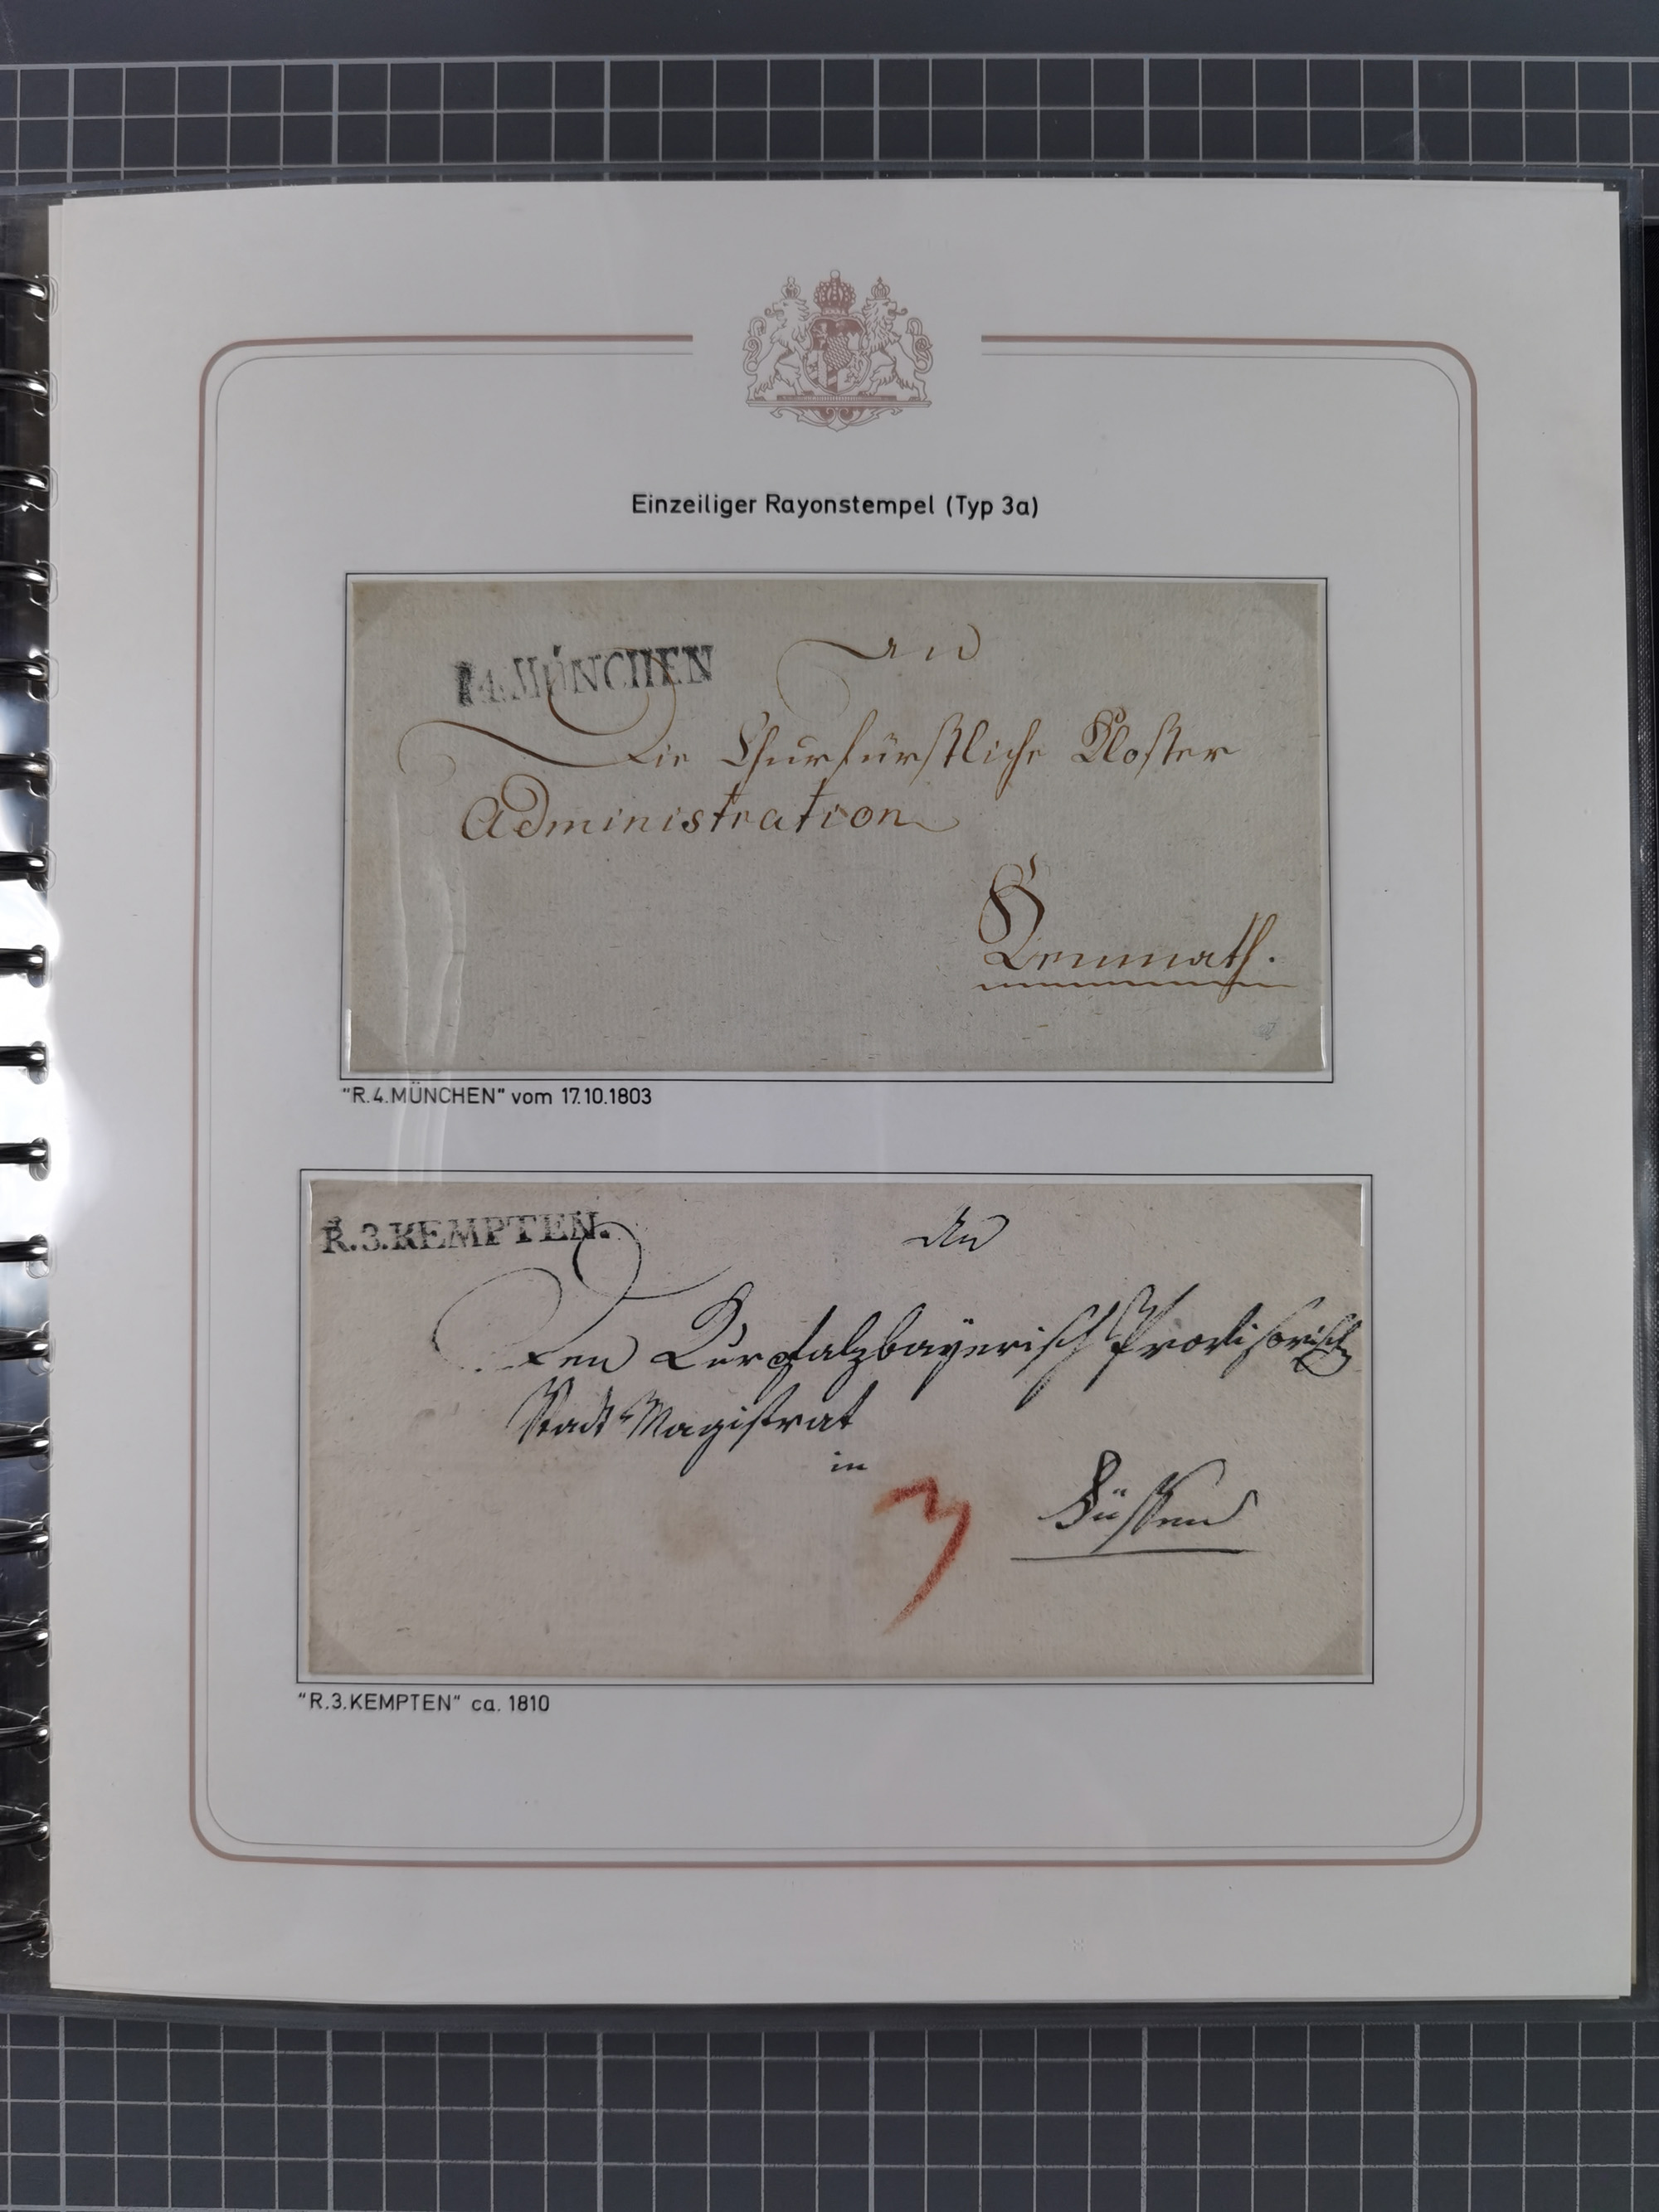 Einzeiliger Rayonstempel (Typ 3a)
R.4.MÜNCHEN
An
Die Churfürstliche Kloster
Administration
Kemnath.
"R.4.MÜNCHEN" vom 17.10.1803
R.3.KEMPTEN.
An
Den Kurpfalzbayerisch Provisorisch
Stadt Magistrat
in
3
Füssen
"R.3.KEMPTEN" ca. 1810